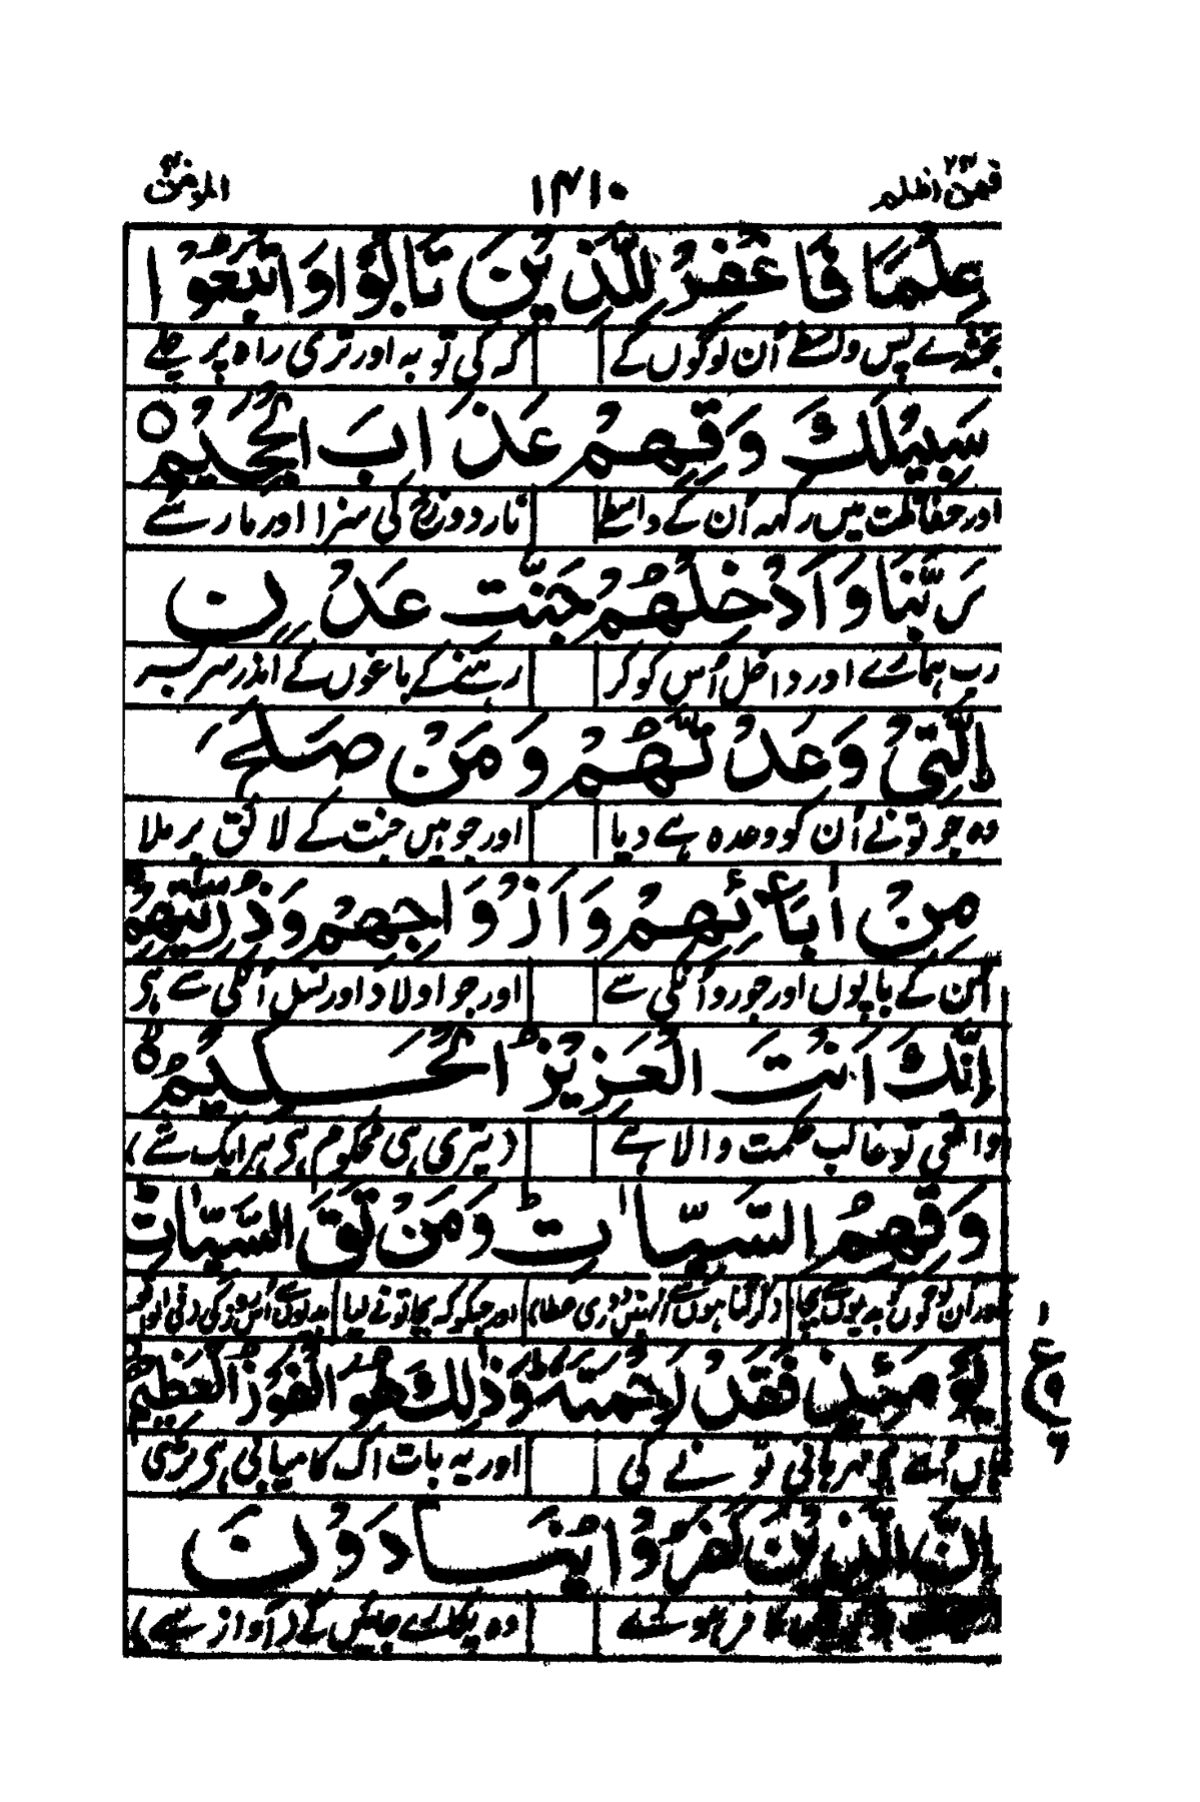 فمن اظلم ۲۴ ۱۴۱۰ المؤمن ۴۰
عِلْمًا فَاغْفِرْ لِلَّذِيْنَ تَابُوْا وَاتَّبَعُوْا
بخشدے پس واسطے اُن لوگوں کے کہ کی توبہ اور تری راہ پر چلے
سَبِيْلَكَ وَقِهِمْ عَذَابَ الْجَحِيْمِ ○
اور حفاظت میں رکھہ اُن کے واسطے نار دوزخ کی سزا اور مار سے
رَبَّنَا وَاَدْخِلْهُمْ جَنّٰتِ عَدْنِ
رب ہمارے اور داخل اُس کو کر رہنے کے باغوں کے اندر سر بسر
الَّتِیْ وَعَدْتَّهُمْ وَمَنْ صَلَحَ
وہ جو تونے اُن کو وعدہ ہے دیا اور جو ہیں جنت کے لائق برملا
مِنْ اٰبَآئِهِمْ وَاَزْوَاجِهِمْ وَذُرِّيّٰتِهِمْ
اُن کے باپوں اور جورو اُنکی سے اور جو اولاد اور نسل اُنکی سے ہی
اِنَّكَ اَنْتَ الْعَزِيْزُ الْحَكِيْمُ
واقعی تو غالب حکمت والا ہے (تیری ہی محکوم ہی ہر ایک شے)
وَقِهِمُ السَّيِّاٰتِ وَمَنْ تَقِ السَّيِّاٰتِ
اور اُن لوگوں کو بدیوں سے بچا اور جسکو کہ بچا تونے لیا
يَوْمَئِذٍ فَقَدْ رَحِمْتَهٗ وَذٰلِكَ هُوَ الْفَوْزُ الْعَظِيْمُ
مہربانی تو نے کی اور یہ بات اک کامیابی ہی بڑی
ع
اِنَّ الَّذِيْنَ كَفَرُوْا يُنَادَوْنَ
کافر ہوئے وہ پکارے جائیں گے (آواز سے)